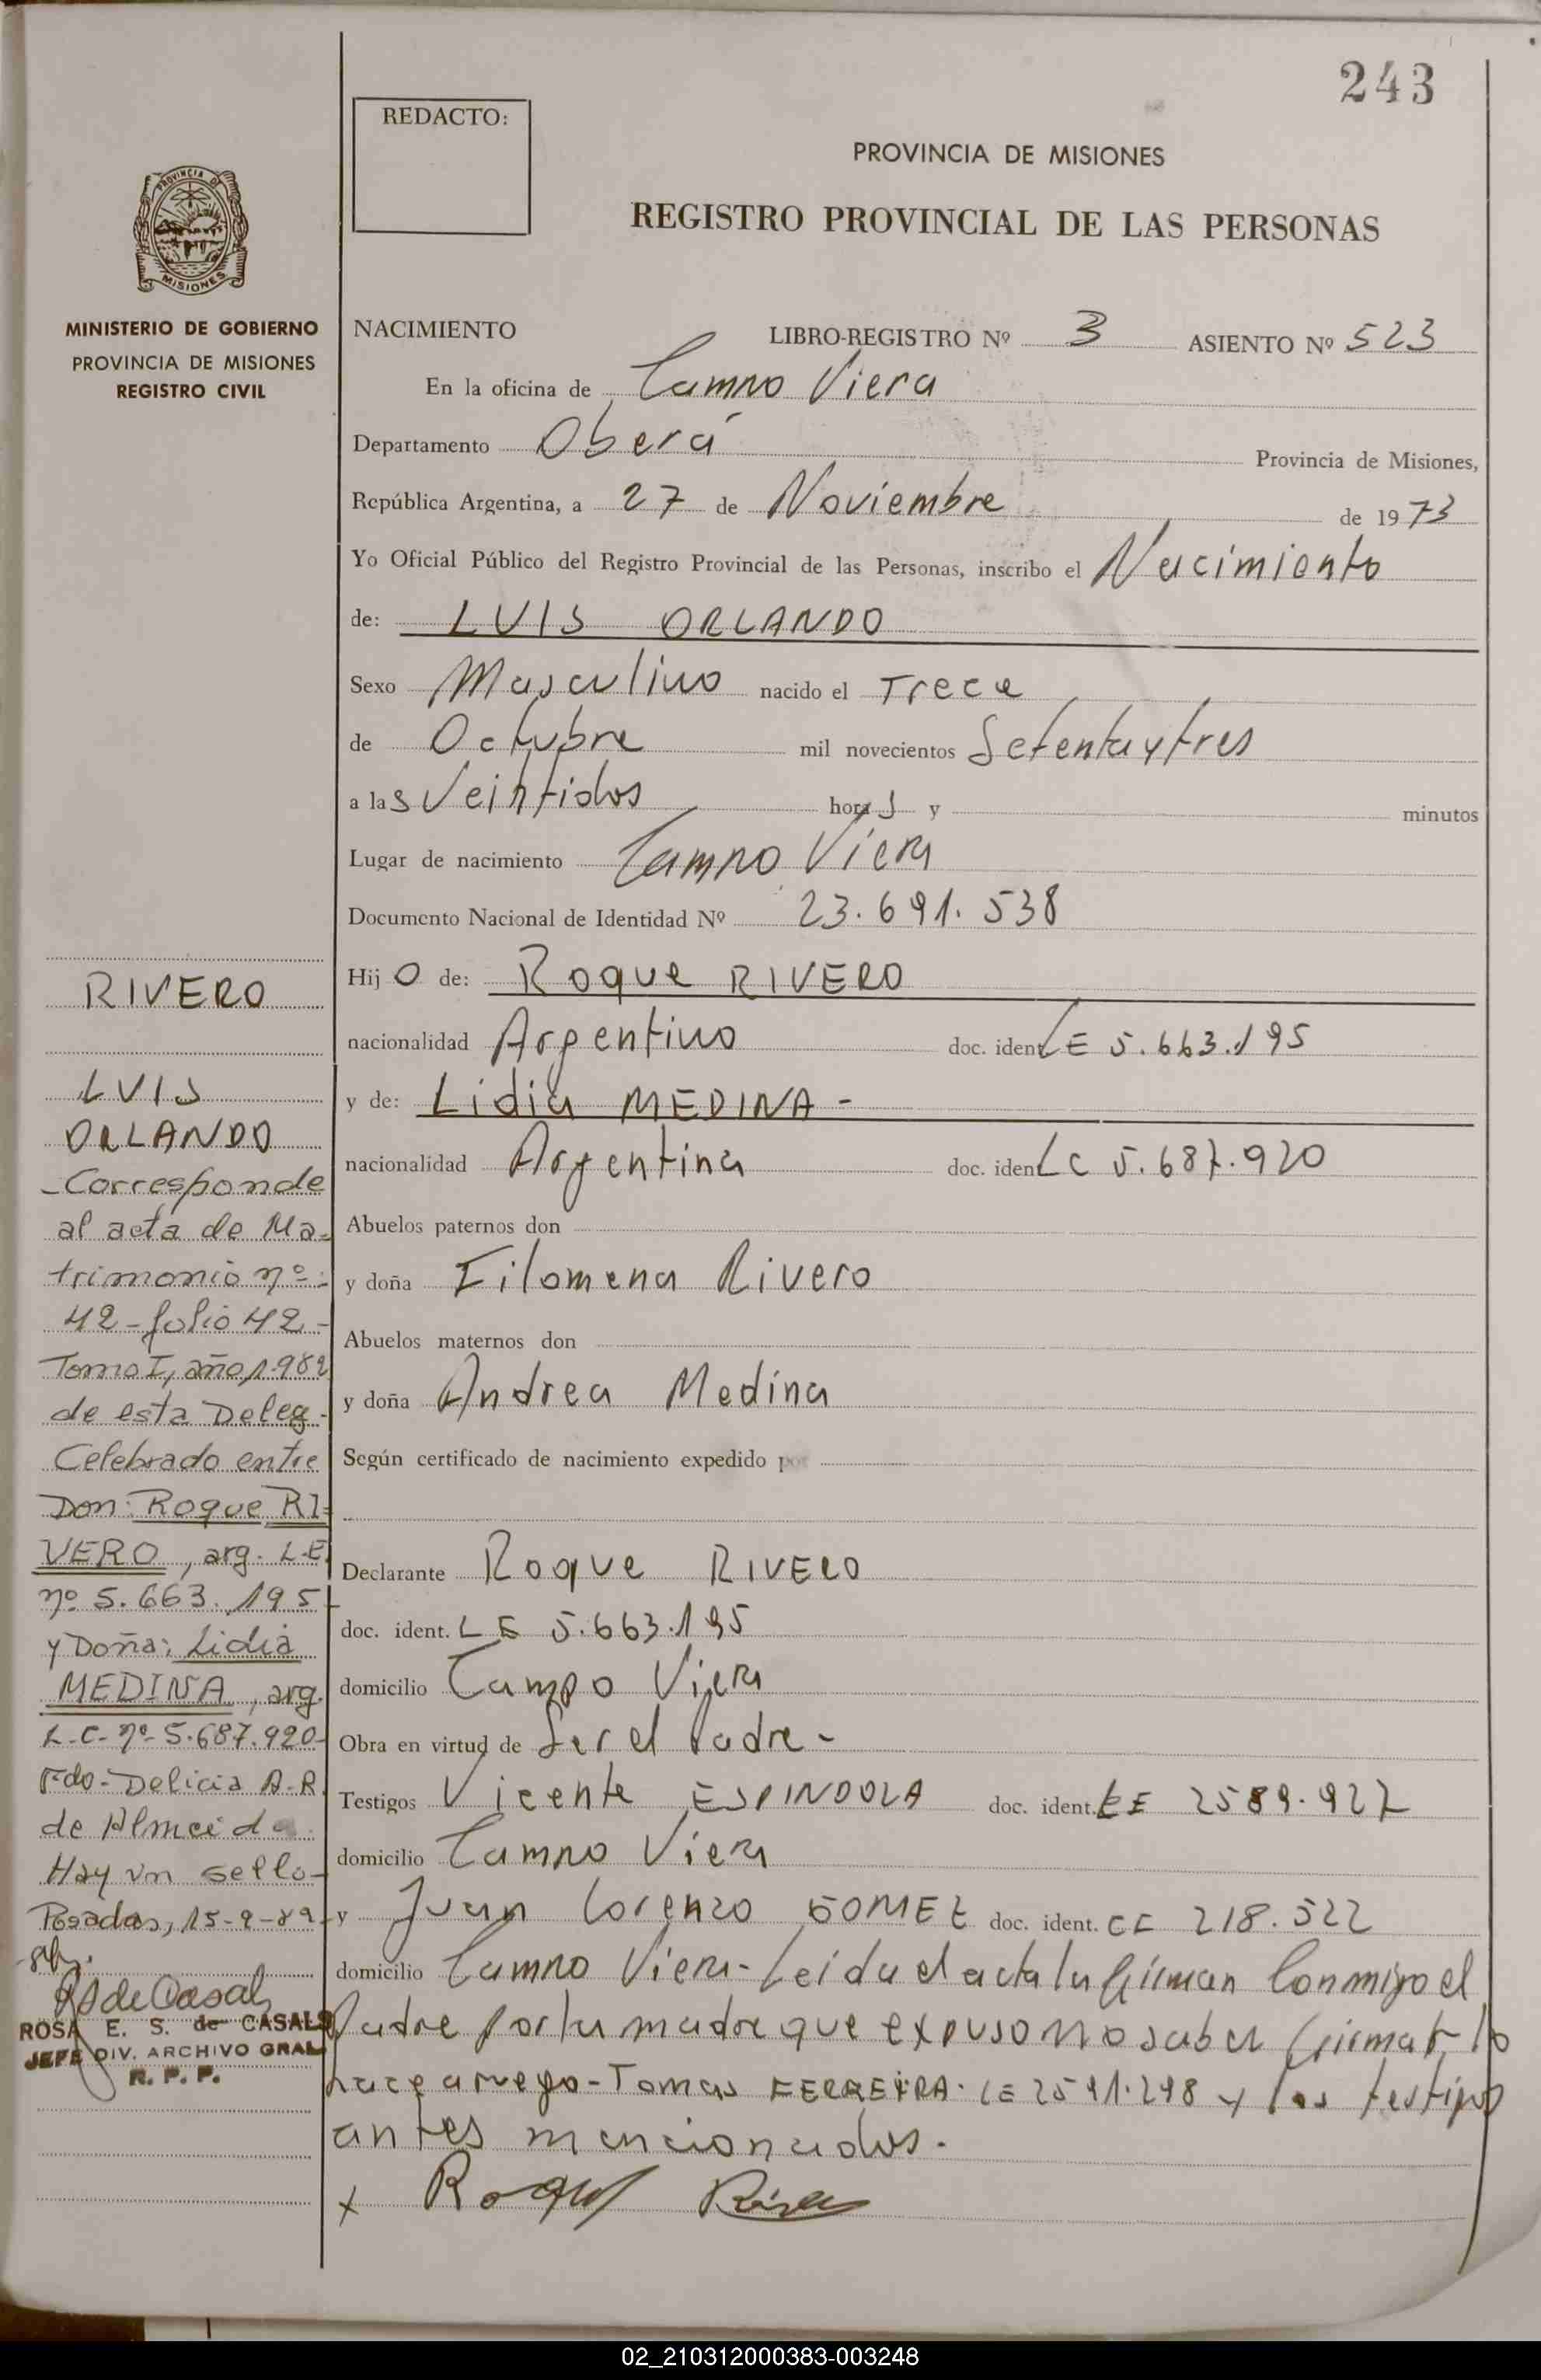 243
REDACTO:
PROVINCIA DE MISIONES
REGISTRO PROVINCIAL DE LAS PERSONAS
PROVINCIA DE
MISIONES
MINISTERIO DE GOBIERNO
PROVINCIA DE MISIONES
REGISTRO CIVIL
NACIMIENTO LIBRO-REGISTRO Nº 3 ASIENTO Nº 523
En la oficina de Campo Viera
Departamento Oberá Provincia de Misiones,
República Argentina, a 27 de Noviembre de 1973
Yo Oficial Público del Registro Provincial de las Personas, inscribo el Nacimiento
de: LUIS ORLANDO
Sexo Masculino nacido el Trece
de Octubre mil novecientos Setentaytres
a las Veintidos horas y minutos
Lugar de nacimiento Campo Viera
Documento Nacional de Identidad Nº 23.691.538
Hijo de: Roque RIVERO
nacionalidad Argentino doc. ident. LE 5.663.195
y de: Lidia MEDINA -
nacionalidad Argentina doc. ident. LC 5.687.920
Abuelos paternos don
y doña Filomena Rivero
Abuelos maternos don
y doña Andrea Medina
Según certificado de nacimiento expedido por
Declarante Roque RIVERO
doc. ident. LE 5.663.195
domicilio Campo Viera
Obra en virtud de Ser el Padre -
Testigos Vicente ESPINDOLA doc. ident. LE 2589.927
domicilio Campo Viera
y Juan Lorenzo GOMEZ doc. ident. CF 218.522
domicilio Campo Viera - Leida el acta la firman Conmigo el
Padre por la madre que expuso no saber firmar lo
hace a ruego - Tomas FERREYRA. LE 2591.298 y los testigos
antes mencionados.
x Roque Rivero
RIVERO
LUIS
ORLANDO
- Corresponde
al acta de Ma-
trimonio nº:
42 - folio 42 -
Tomo I, año 1.982
de esta Deleg.
Celebrado entre
Don: Roque RI-
VERO, arg. L.E.
nº 5.663.195
y Doña: Lidia
MEDINA, arg.
L.C. nº 5.687.920-
Fdo - Delicia A.R.
de Almeida
Hay un sello -
Posadas, 15-9-89
RS de Casals
ROSA E. S. de CASALS
JEFE DIV. ARCHIVO GRAL
R. P. P.
02_210312000383-003248